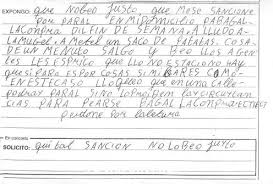 EXPONGO: que NO beo Justo, que Mese SANCIONE
POR PARAL EN MI DOMICILIO PABAGAL
LACONPRA DILFIN DE SEMANA. ALLUDO A
LAMUGEL A METEL UN SACO DE PATATAS. COSA
DE UN MENUTO SALGO Y BEO LLOS AGEN
TES LESESPLICO QUE LLO NO ESTACIONO HAY
QUE SI PARA ESPOR COSAS SIMILARES COMO
EN ESTE CASO LLO CREO QUE EN UNA CALLE
PODRAY PARAL SINO LO PROIBEN LAY CIRCULAN
CIAS PARA BAGAL LACONPRA
perdone POR La letura
En concreto
SOLICITO: quibal SANCION NO LO BEO JUSTO